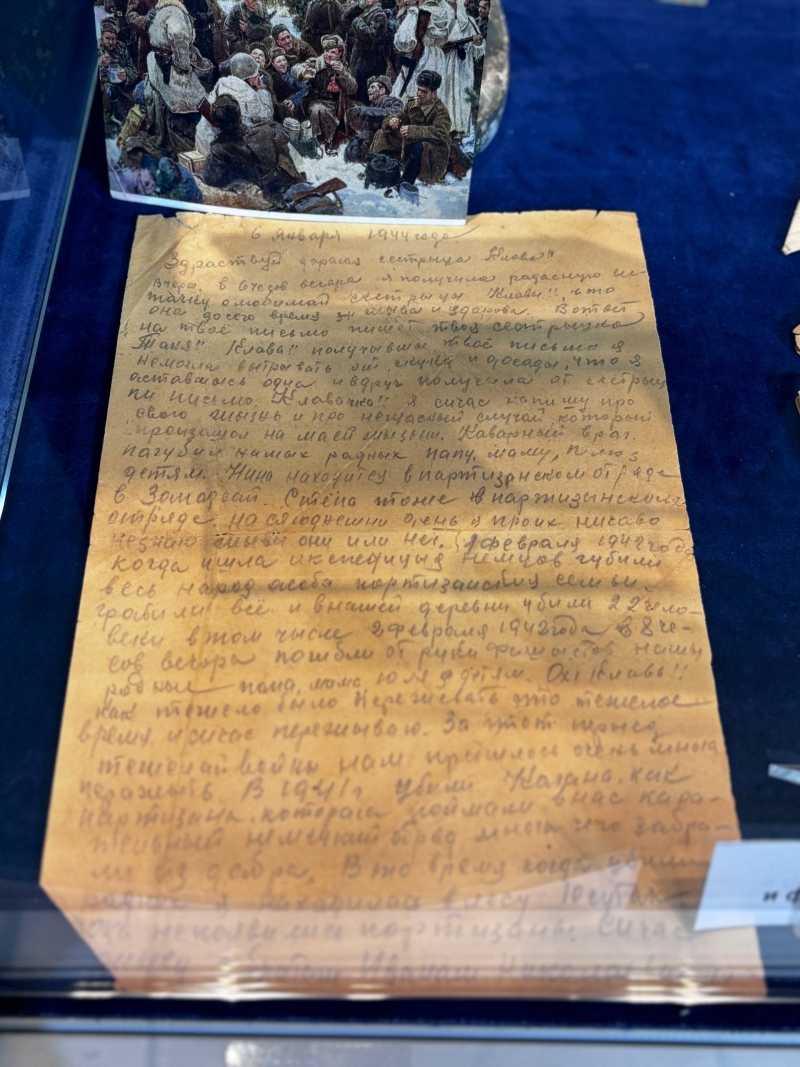 6 Января 1944 года
Здраствуй дарагая сестрица Клава!!
Вчера в 6 чесов вечера я получила радасную ве-
тачку о любимай сестрицы Клавы!!, что
она до сего время жива и здорова. В ответ
на твоё письмо пишет твоя сестрица
Таня!! Клава!! получивша твоё письмо я
немогла вытрывать от и досады, что я
оставшась одна и вдруг получила от сестрыц
ы письмо. Клавачка!! я сичас напишу про
свою жызнь и про нещасный случай который
произашол на маей жызьни. Каварный враг
пагубил нашых радных папу, маму, Юлю з
детям. Нина находитса в партизанском отряде
в Западнай. Стёпа тоже в партизынском
отряде. на сягоднешни день о проих ничаво
незнаю жывы они или нет. 2 февраля 1942 года
когда ишла икспедицыя немцов губили
весь народ асоба партизанския семьи.
грабили всё и внашей деревни убили 22 чело-
века втом числе 2 февраля 1942 года в 8 че-
сов вечера погибли от руки фашыстов нашы
родные папа, мама Юля з дитям. Ох! Клава!!
как тежело было пережывать это тежелое
время и сичас пережываю. За этот
тежелай войны нам прешлось очень многа
перажыть. В 1941 г убили как
партизана, котораго поймали внас кара-
тельный немецкий отрад многа чего забра-
ли из добра. В то время когда убили
радных я находилась в лесу 10 суток
непоявилиса партизаны. Сичас
жыву з братом Иваном Николаевичем
и ф